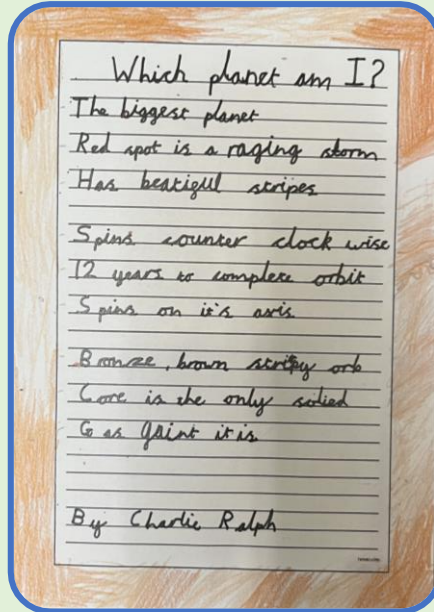 Which planet am I?
The biggest planet
Red spot is a raging storm
Has beatigul stripes
Spins counter clock wise
12 years to complete orbit
Spins on it's axis
Bronze, brown stripy orb
Core is the only solied
Gas gaint it is
By Charlie Ralph